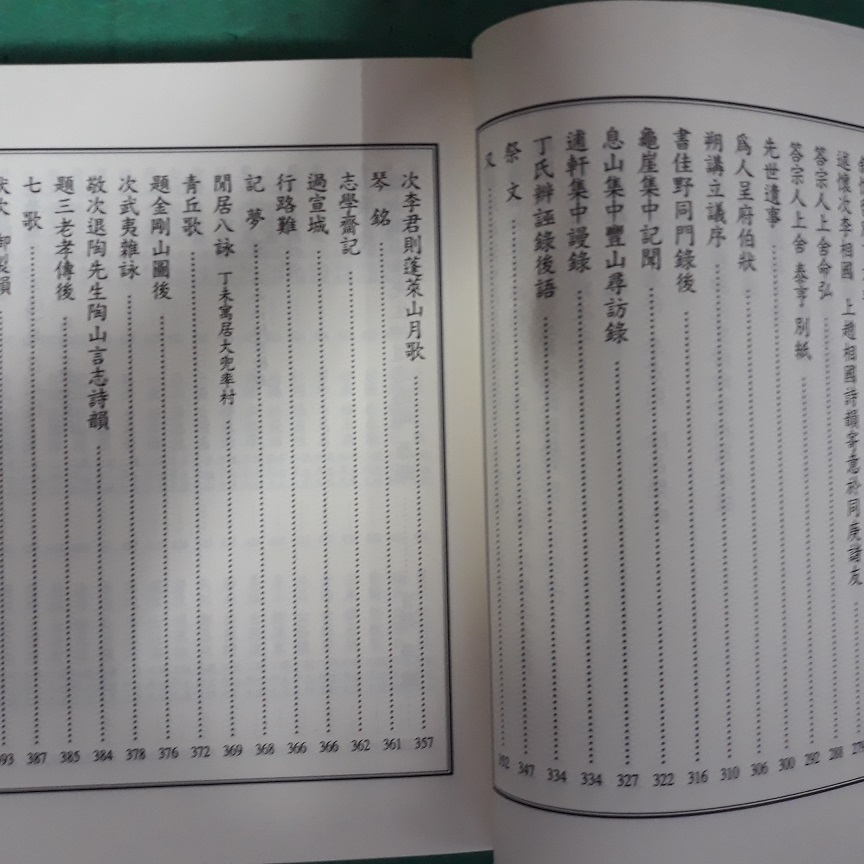 遠懷次李相國 上趙相國詩韻寄意於同庚諸友 279
答宗人上舍命弘 288
答宗人上舍 泰亨 別紙 292
先世遺事 300
爲人呈府伯狀 306
朔講立議序 310
書佳野同門錄後 316
龜崖集中記聞 322
息山集中豐山尋訪錄 327
逋軒集中謾錄 334
丁氏辨誣錄後語 334
祭文 347
又
次李君則蓬萊山月歌 357
琴銘 361
志學齋記 362
過宣城 366
行路難 366
記夢 368
閒居八詠 丁未寓居大兜率村 369
靑丘歌 372
題金剛山圖後 376
次武夷雜詠 378
敬次退陶先生陶山言志詩韻 384
題三老孝傳後 385
七歌 387
御製韻